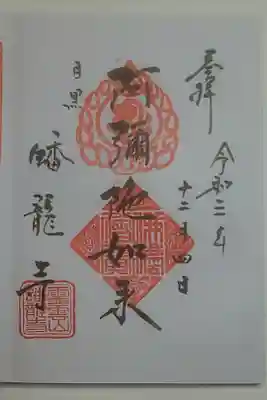 奉拝
令和二年
十二月四日
阿彌陀如来
目黒
蟠龍寺